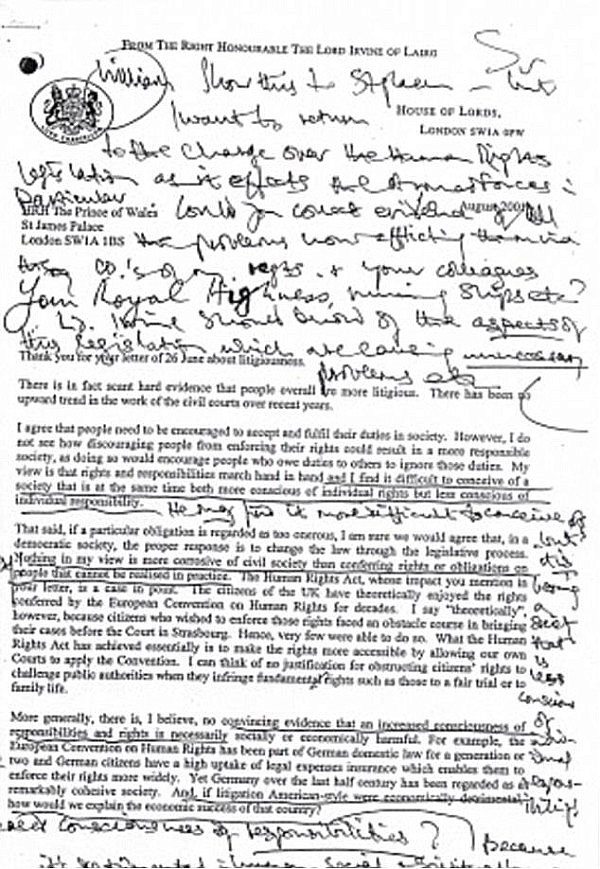 FROM THE RIGHT HONOURABLE THE LORD IRVINE OF LAIRG
William Show this to
HOUSE OF LORDS,
I want to return
LONDON SW1A 0PW
to the charge over the Human Rights
legislation as it effects the Armed Forces in
particular. Could you
August 2001
HRH The Prince of Wales
St James Palace
London SW1A 1BS
the problems now afflicting
CO.'s of my regts. & your colleagues
Your Royal Highness, running ships etc?
Ld. Irvine should know of the aspects of
this legislation which are causing unnecessary
problems etc
Thank you for your letter of 26 June about litigiousness.
There is in fact scant hard evidence that people overall are more litigious. There has been no
upward trend in the work of the civil courts over recent years.
I agree that people need to be encouraged to accept and fulfil their duties in society. However, I do
not see how discouraging people from enforcing their rights could result in a more responsible
society, as doing so would encourage people who owe duties to others to ignore those duties. My
view is that rights and responsibilities march hand in hand and I find it difficult to conceive of a
society that is at the same time both more conscious of individual rights but less conscious of
individual responsibility.
He may find it more difficult to conceive of
but
it is
being
a
society
that
is
less
conscious
of
individual
responsibility
That said, if a particular obligation is regarded as too onerous, I am sure we would agree that, in a
democratic society, the proper response is to change the law through the legislative process.
Nothing in my view is more corrosive of civil society than conferring rights or obligations on
people that cannot be realised in practice. The Human Rights Act, whose impact you mention in
your letter, is a case in point. The citizens of the UK have theoretically enjoyed the rights
conferred by the European Convention on Human Rights for decades. I say "theoretically",
however, because citizens who wished to enforce those rights faced an obstacle course in bringing
their cases before the Court in Strasbourg. Hence, very few were able to do so. What the Human
Rights Act has achieved essentially is to make the rights more accessible by allowing our own
Courts to apply the Convention. I can think of no justification for obstructing citizens' rights to
challenge public authorities when they infringe fundamental rights such as those to a fair trial or to
family life.
More generally, there is, I believe, no convincing evidence that an increased consciousness of
responsibilities and rights is necessarily socially or economically harmful. For example, the
European Convention on Human Rights has been part of German domestic law for a generation or
two and German citizens have a high uptake of legal expenses insurance which enables them to
enforce their rights more widely. Yet Germany over the last half century has been regarded as a
remarkably cohesive society. And, if litigation American-style were economically detrimental,
how would we explain the economic success of that country?
consciousness of responsibilities? because